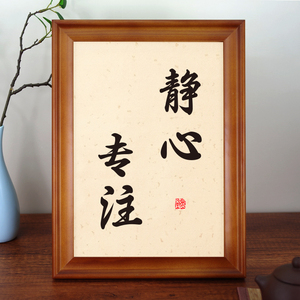 静心
专注